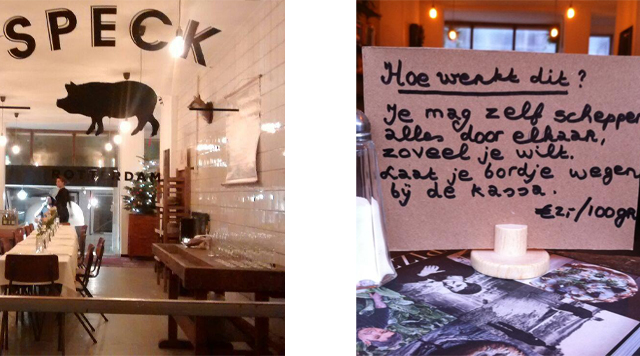 SPECK
ROTTERDAM
Hoe werkt dit?
Je mag zelf scheppen
alles door elkaar,
zoveel je wilt.
Laat je bordje wegen
bij de kassa.
€2,-/100gr